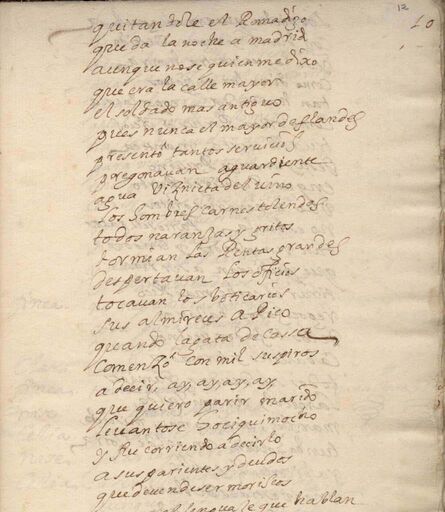 12
10
quitandole el Romadizo
que da la noche a madrid
aunque no se quien me dixo
que era la calle mayor
el soldado mas antiguo
pues nunca el mayor de flandes
presentó tantos servicios
pregonauan aguardiente
agua Viznieta del vino
los hombres carnestolendos
todos naranjas y gritos
dormian las Rentas grandes
despertauan los oficios
tocauan los boticarios
sus almireces a Pico
quando la gata de cassa
Comenzó con mil suspiros
a decir, ay, ay, ay, ay
que quiero parir marido
leuantose hociquimocho
y fue corriendo a decirlo
a sus parientes y deudos
que deuen de ser moriscos
lengua le que hablan